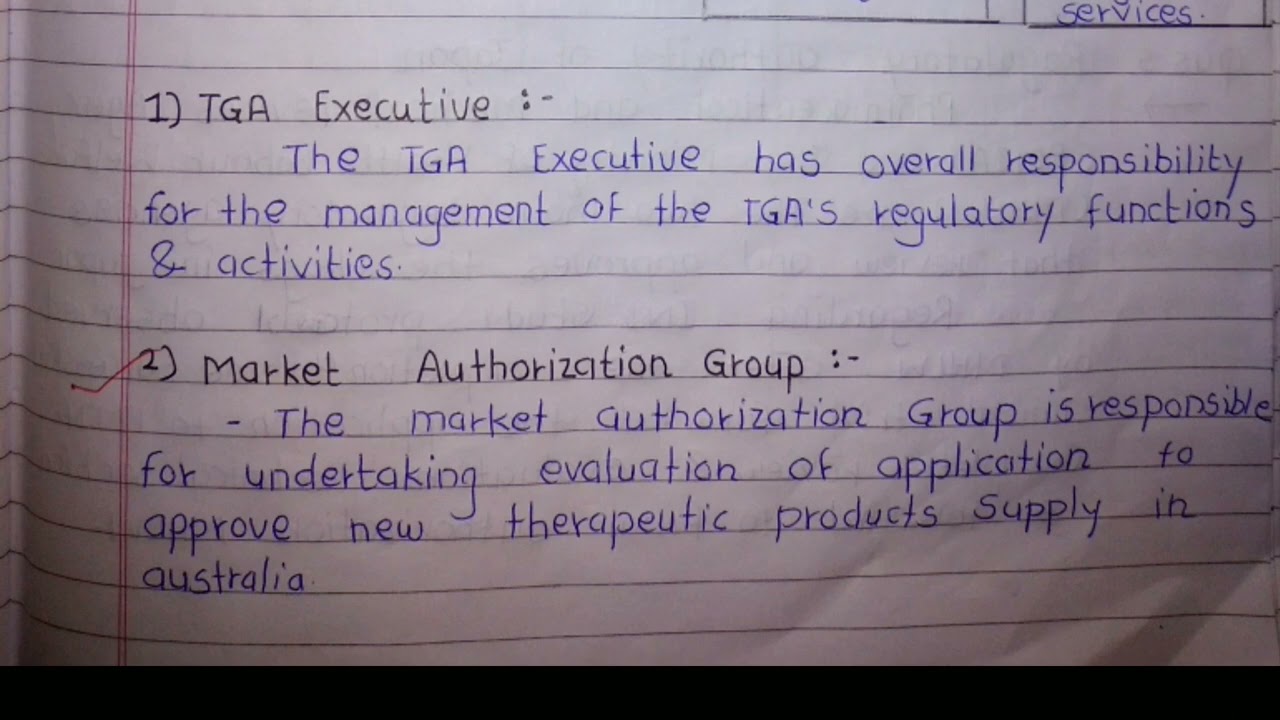 services.
1) TGA Executive :-
The TGA Executive has overall responsibility
for the management of the TGA's regulatory functions
& activities.
2) Market Authorization Group :-
- The market authorization Group is responsible
for undertaking evaluation of application to
approve new therapeutic products supply in
australia.